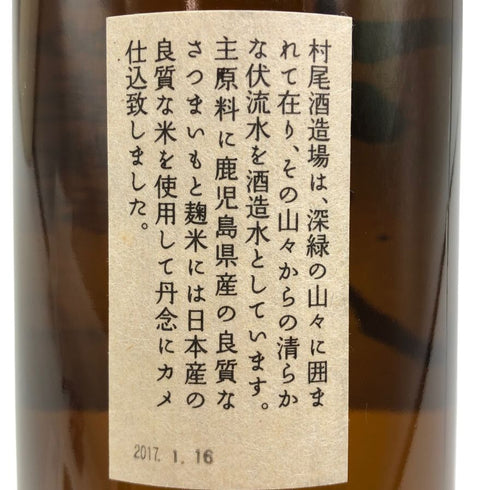 村尾酒造場は、深緑の山々に囲ま
れて在り、その山々からの清らか
な伏流水を酒造水としています。
主原料に鹿児島県産の良質な
さつまいもと麹米には日本産の
良質な米を使用して丹念にカメ
仕込致しました。
2017. 1. 16